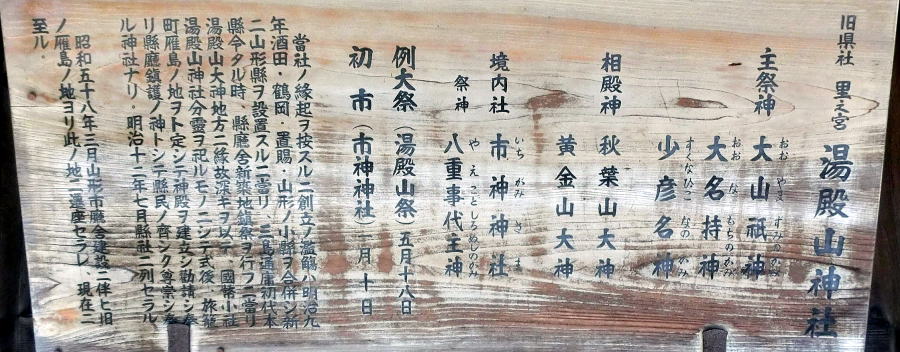 旧県社 里之宮 湯殿山神社
主祭神 大山祇神
おおやまずみのかみ
大名持神
おおなもちのかみ
少彦名神
すくなひこなのかみ
相殿神 秋葉山大神
黄金山大神
境内社 市神神社
いちがみさま
祭神 八重事代主神
やえことしろぬしのかみ
例大祭 湯殿山祭(五月十八日)
初市(市神神社)一月十日
當社ノ縁起ヲ按スルニ創立ノ濫觴ハ明治九
年酒田・鶴岡・置賜・山形ノ小縣ヲ合併シ新
ニ山形縣ヲ設置スルニ當リ、三島通庸初代本
縣令タル時、縣廳舎新築地鎮祭ヲ行フニ當リ
湯殿山大神地方ニ縁故深キヲ以テ、國幣小社
湯殿山神社分靈ヲ祀ルモノニシテ式後、旅籠
町雁島ノ地ヲト定シテ神殿ヲ建立シ勸請シ奉
リ縣廳鎮護ノ神トシテ縣民ノ齊シク尊崇シ奉
ル神社ナリ・明治十二年七月縣社ニ列セラル、
昭和五十八年三月山形市廳舎建設ニ伴ヒ旧
ノ雁島ノ地ヨリ此ノ地ニ遷座セラレ、現在ニ
至ル・